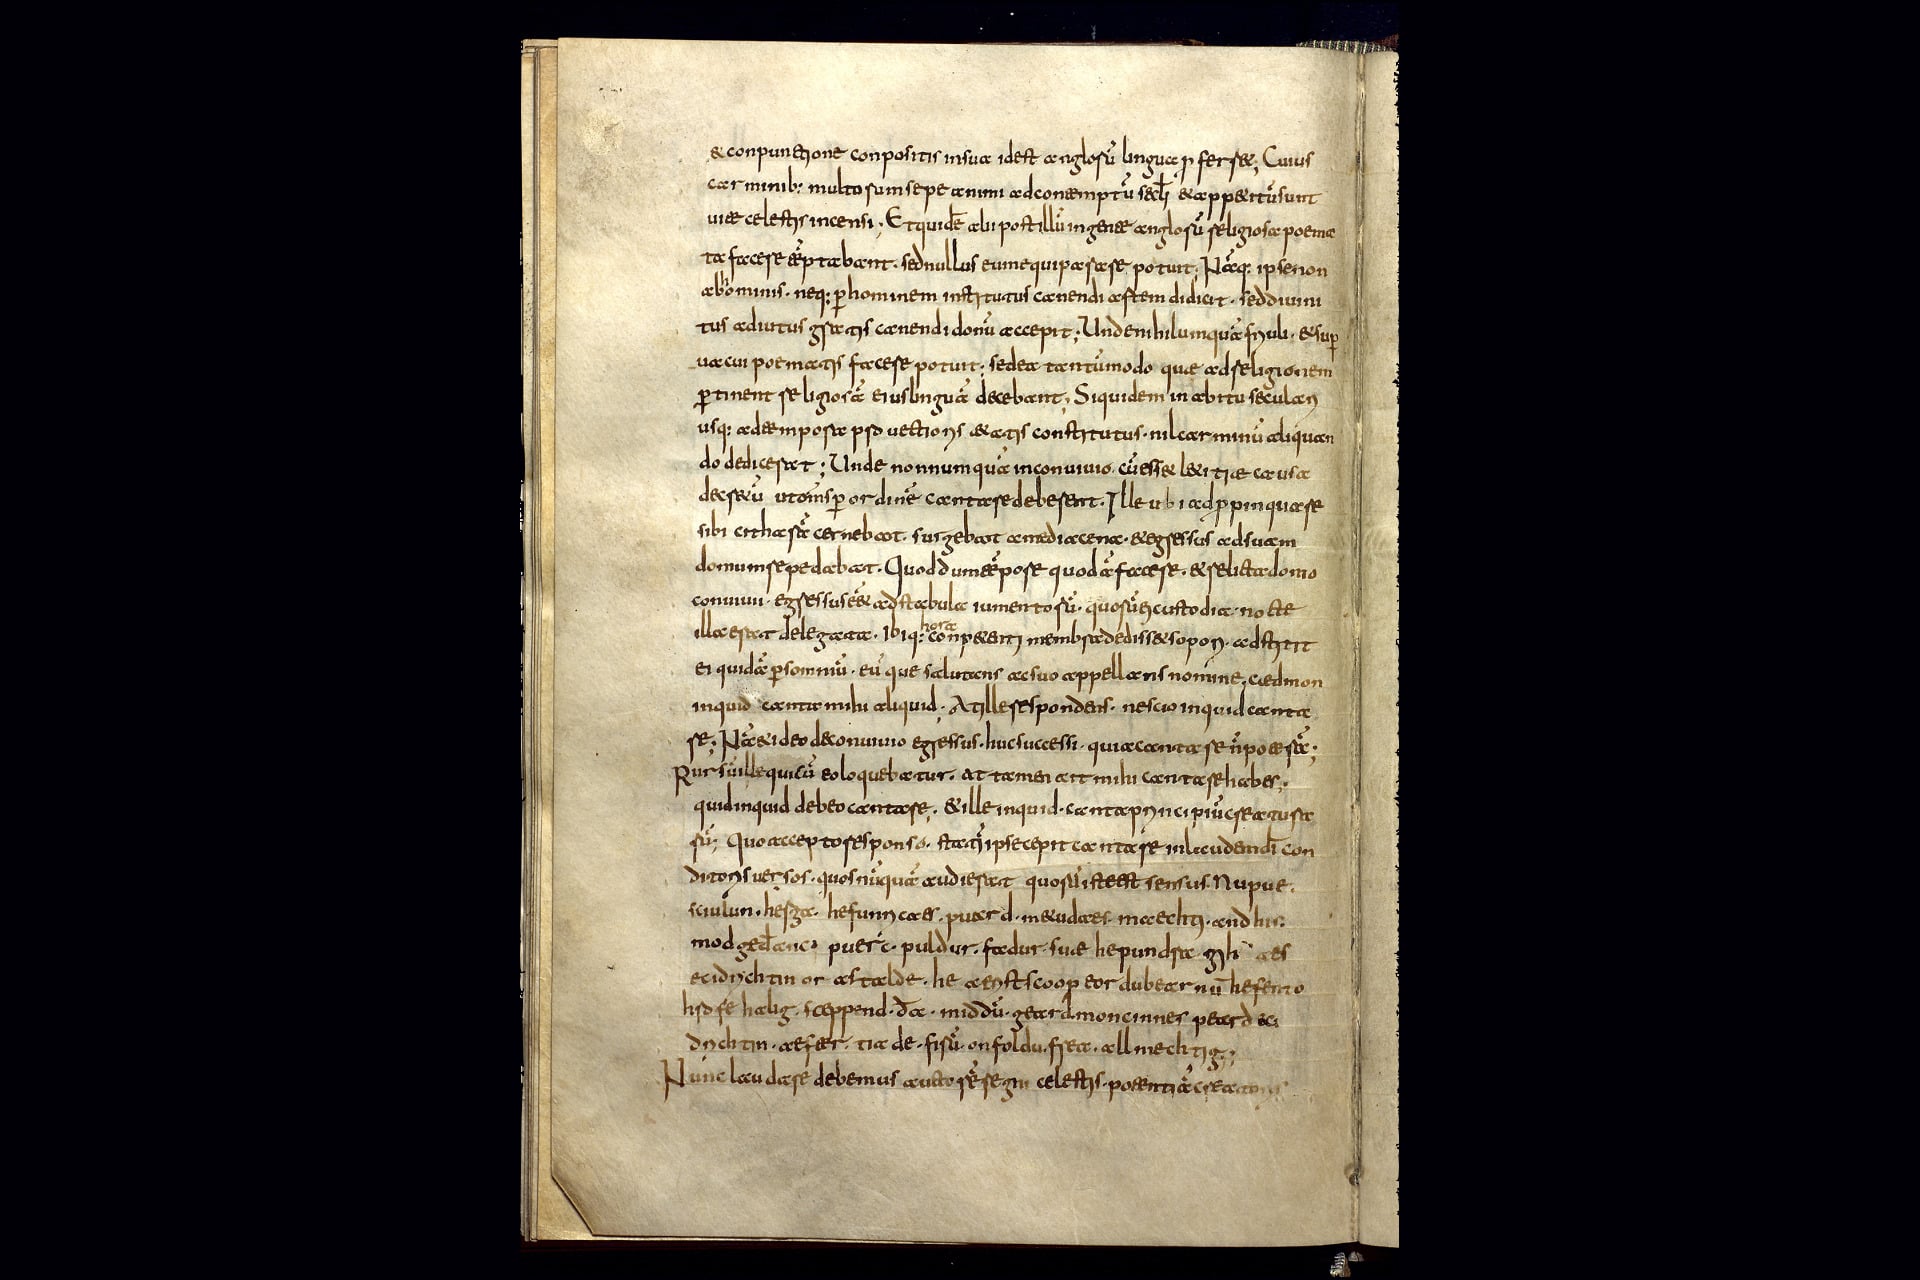 & conpunctione conpositis in sua id est anglorū lingua ꝓferret; Cuius
carminib: multorum sepe animi ad contemptū sec̄li & appetitū sunt
uitae celestis incensi; Et quidē alii post illū in gente anglorū religiosa poema
ta facere tēptabant. sed nullus eum equiparare potuit; Nāq: ipse non
ab hominis. neq: ꝑ hominem institutus canendi artem didicit. sed diuini
tus adiutus gratis canendi donū accepit; Unde nihil umquā friuoli. & suꝑ
uacui poematis facere potuit; sed ea tantūmodo quae ad religionem
ꝑtinent religiosā eius linguā decebant; Siquidem in abitu seculari
usq: ad tempora prouectioris aetatis constitutus. nil carminū aliquan
do dedicerat; Unde nonnumquā in conuiuio. cū esset laetitiae causa
decretū ut om̄s ꝑ ordinē cantare deberent. Ille ubi adꝓpinquare
sibi citharā cernebat. surgebat a media cena. & egressus ad suam
domum repedabat. Quod dum tēpore quodā faceret. & relicta domo
conuiui. egressus eēt ad stabula iumentorū. quorū ei custodia nocte
illa erat delegata. Ibiq: hora conpetenti membra dedisset sopori. adstitit
ei quidā ꝑ somniū. eūque salutans ac suo appellans nomine. caedmon
inquid canta mihi aliquid. At ille respondens. nescio inquid canta
re; Nā & ideo de conuiuio egressus. huc successi. quia cantare n̄ poterā;
Rursū ille qui cū eo loquebatur. at tamen ait mihi cantare habes;
quid inquid debeo cantare. & ille inquid. canta principiū creatura
rū; Quo accepto responso. statī ipse cepit cantare in laudem d̄i con
ditoris uersos. quos nūquā audierat quorū iste est sensus. Nu pue.
sciulun. herga. hefunricaes. puard. metudaes. maechti. and his.
modged̄anc. puerc. puldur. fadur. suae hepundra gihuaes
eci drichtin or astalde. he aerist scoop eordubearnū hefen to
hrofe halig. sceppend. da. middū. geard. moncinnes peard eci
drichtin. aefter. tiade. firū. on foldu. frea. allmechtig;
Nunc laudare debemus auctorē regni celestis. potentiā creatoris